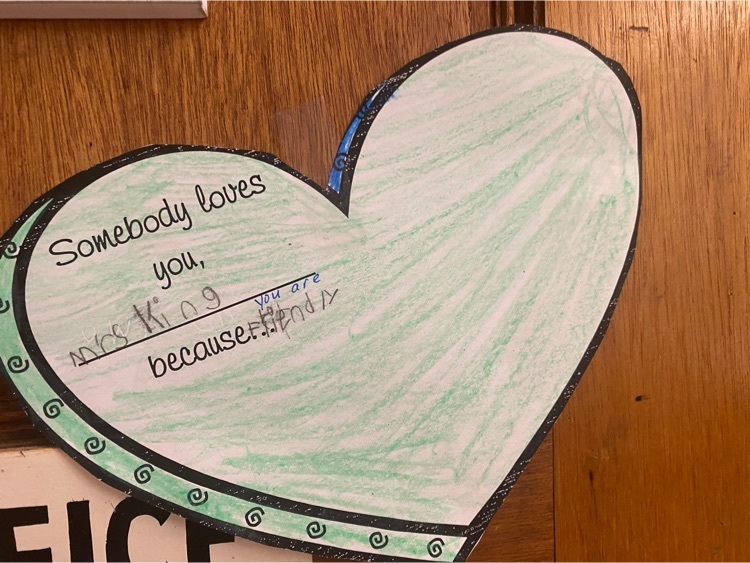 Somebody loves
you,
mrs King
you are
because... friendly
FICE